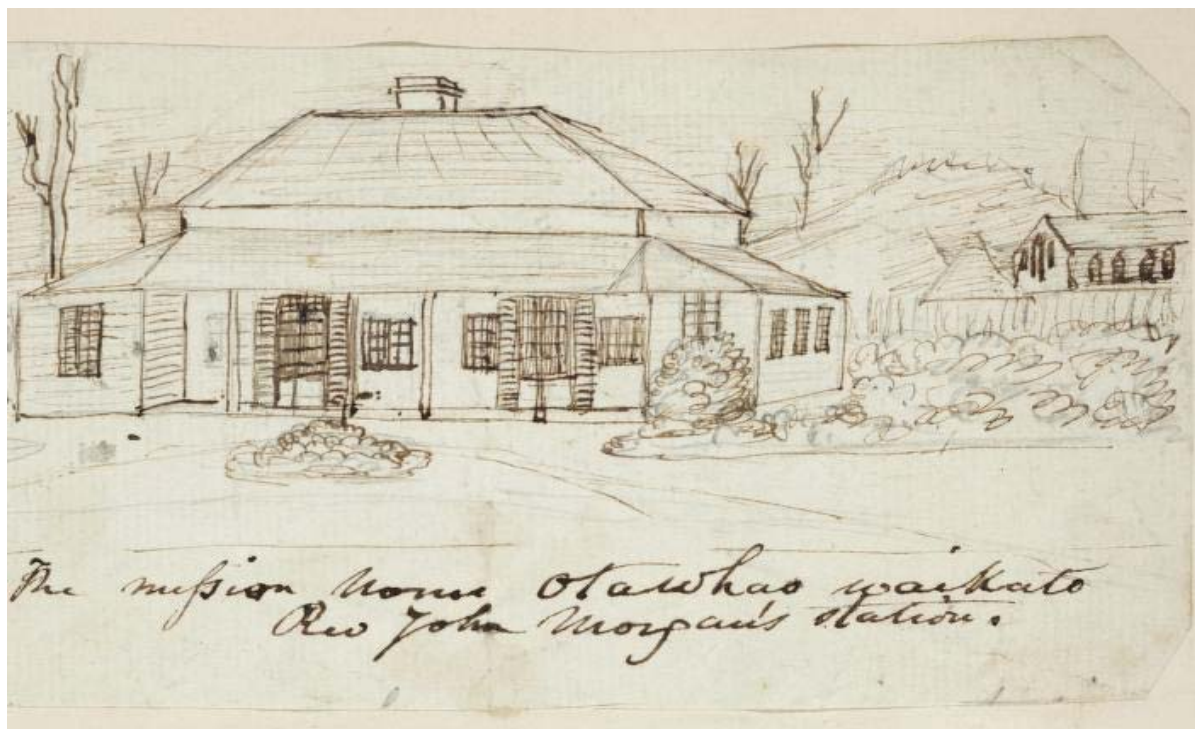 The mission House Otawhao waikato
Rev John Morgan's station.